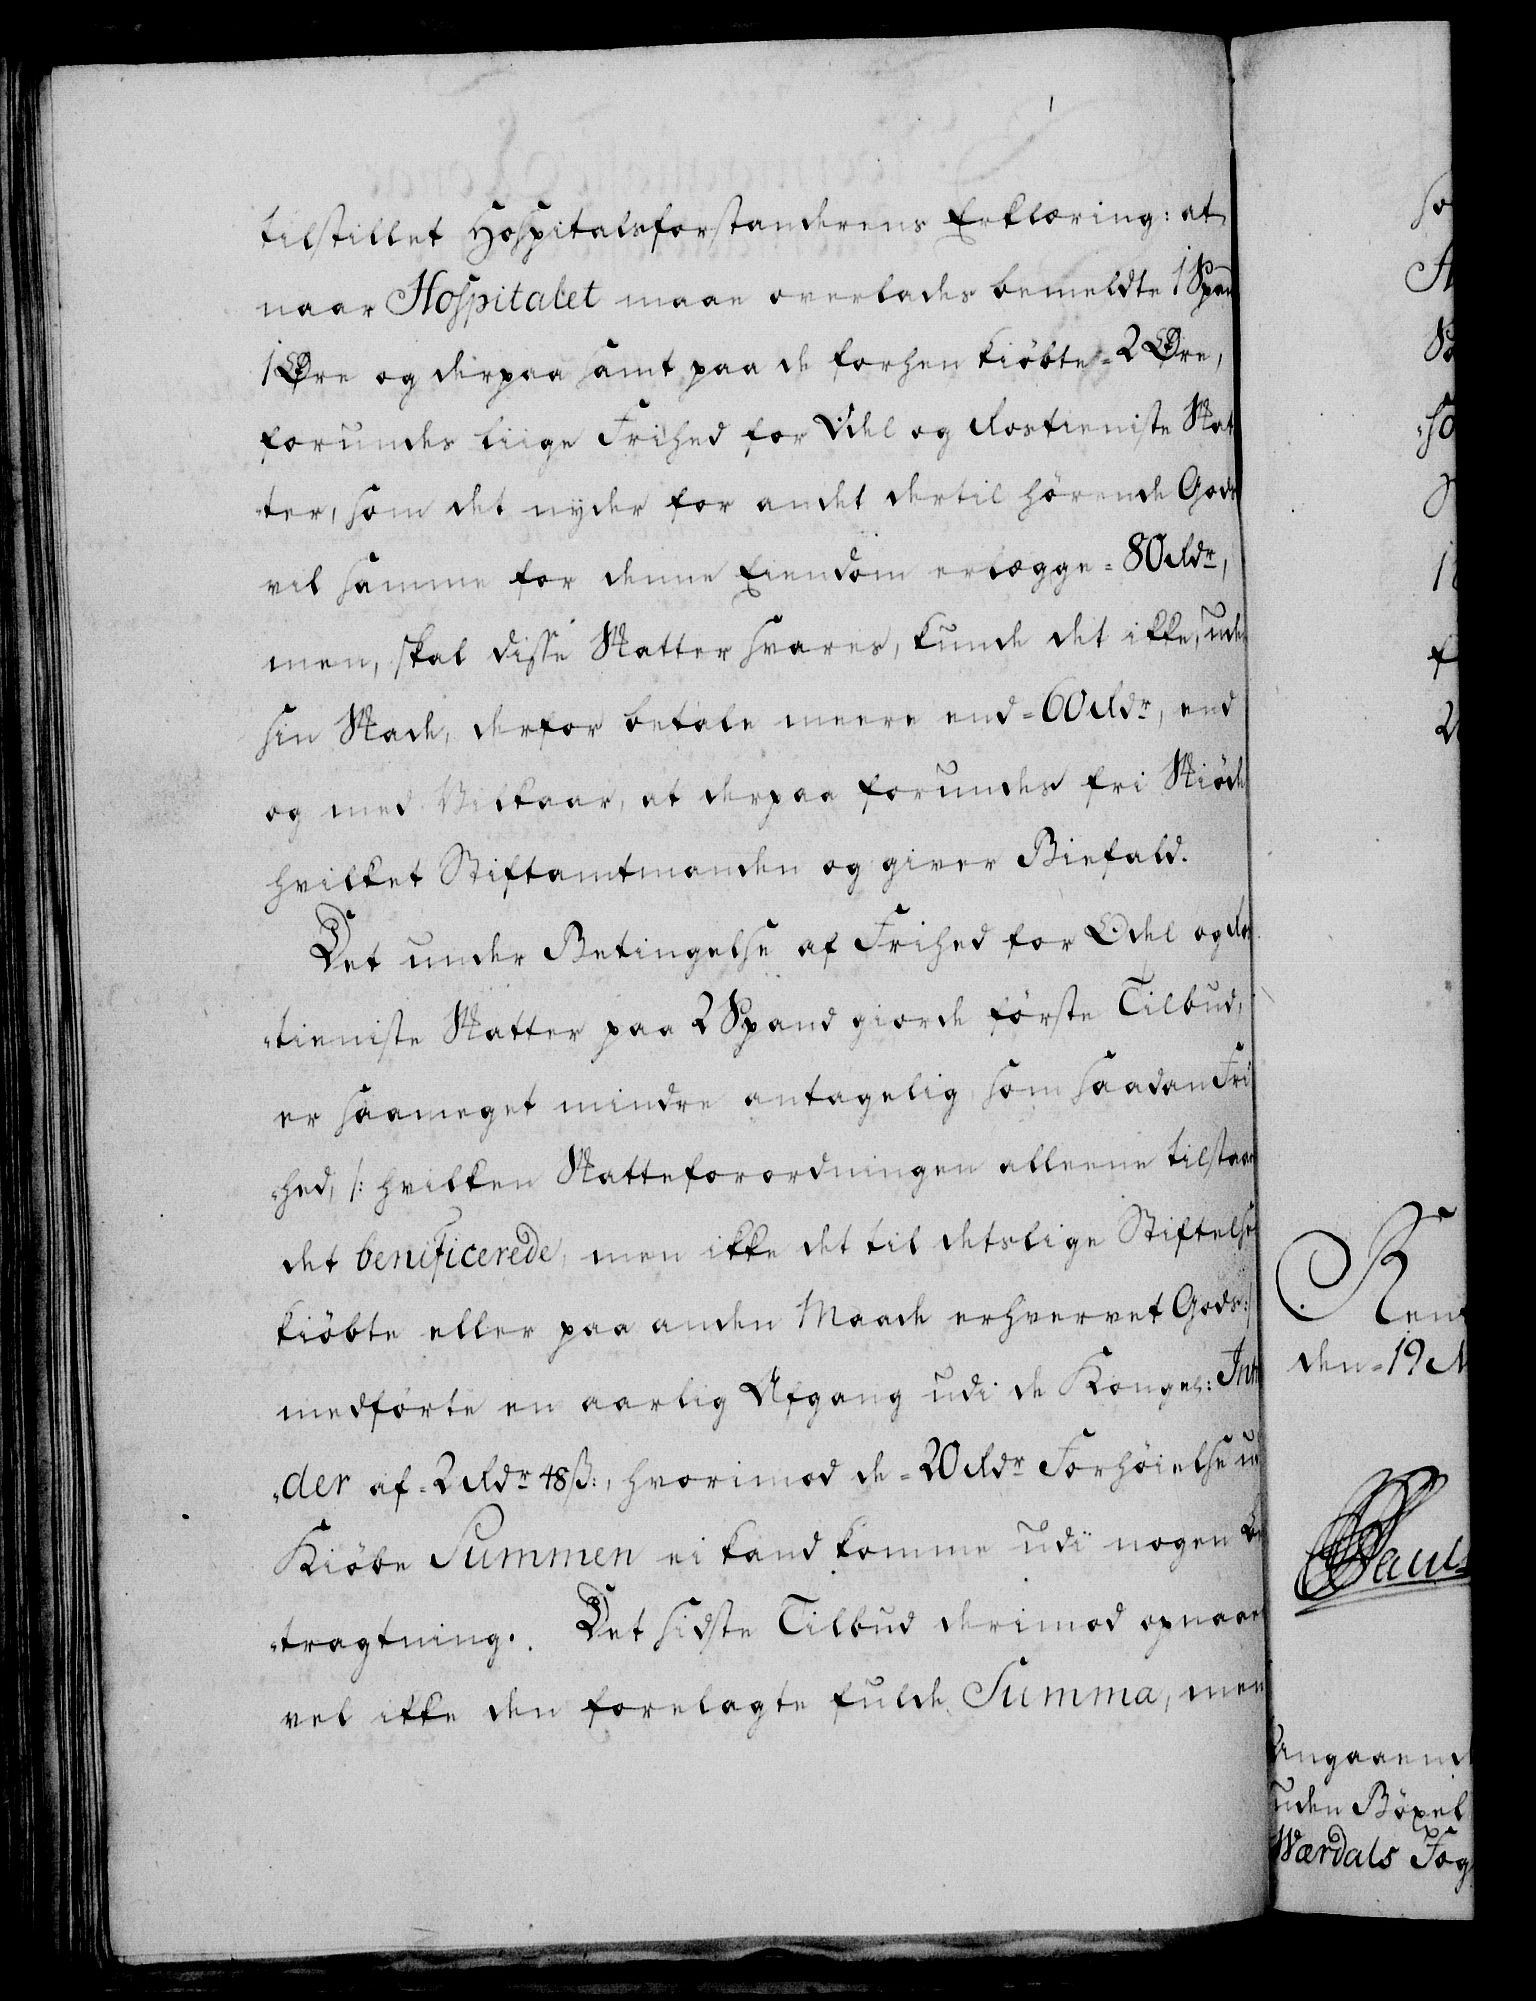 tilstillet Hospitalsforstanderens Erklæring: at
naar Hospitalet maae overlades bemeldte 1 Span
1 Øre og derpaa samt paa de forhen kiøbte = 2 Øre,
forundes liige Frihed for Odel og Rostieniste Skat
"ter, som det nyder for andet dertil hørende Gods
vil samme for denne Eiendom erlægge = 80 Rdr,
men, skal disse Skatter svares, kunde det ikke, uden
sin Skade, derfor betale meere end = 60 Rdr, end
og med Vilkaar, at derpaa forundes fri Skiøde
hvilket Stiftamtmanden og giver Biefald.
Det under Betingelse af Frihed for Odel og Ros
"tieniste Skatter paa 2 Spand giorde første Tilbud,
er saameget mindre antagelig, som saadan Fri
"hed, /: hvilken Skatteforordningen alleene tilstaar
det benificerede, men ikke det til detslige Stiftelser
kiøbte eller paa anden Maade erhvervet Gods :/
medførte en aarlig Afgang udi de Kongel: Inn
"der af = 2 Rdr 48 ß:, hvorimod de = 20 Rdr Forhøielse ud
Kiøbe Summen ei kand komme udi nogen Be
"tragtning. Det sidste Tilbud derimod opnaaer
vel ikke den forelagte fulde Summa, men
so
1
f
Rent
den = 19 M
Paul
Angaaend
uden Böxel
Værdals Fog